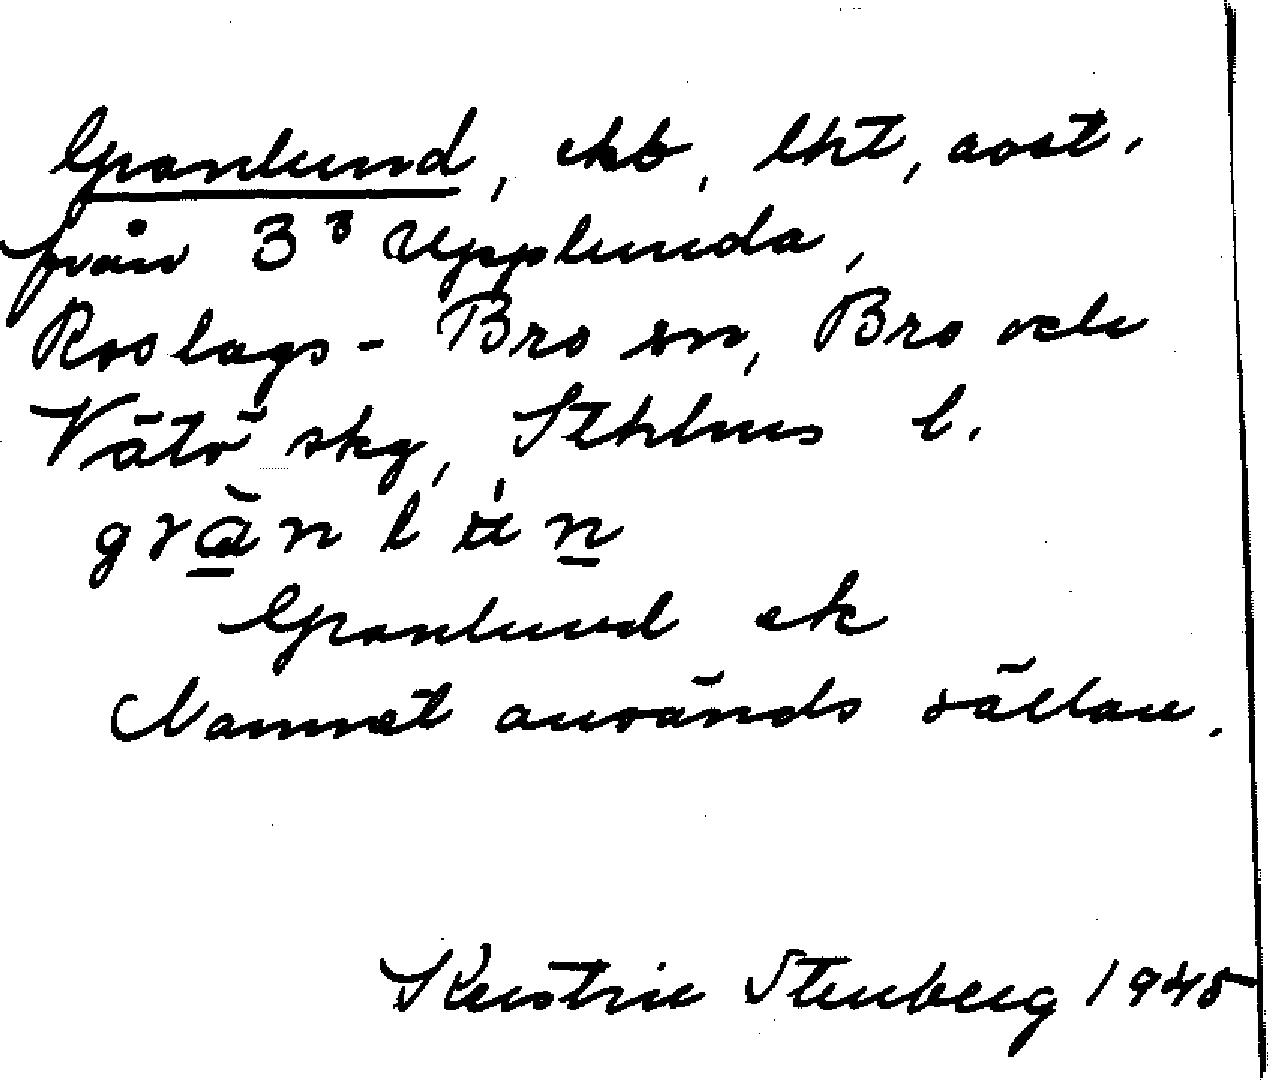 Granlund, ekb, lht, avst.
från 3³ Upplunda,
Roslags-Bro sn, Bro och
Vätö skg, Sthlms l.
grànlun
Granlund ek
Namnet används sällan.
Kerstin Stenberg 1945